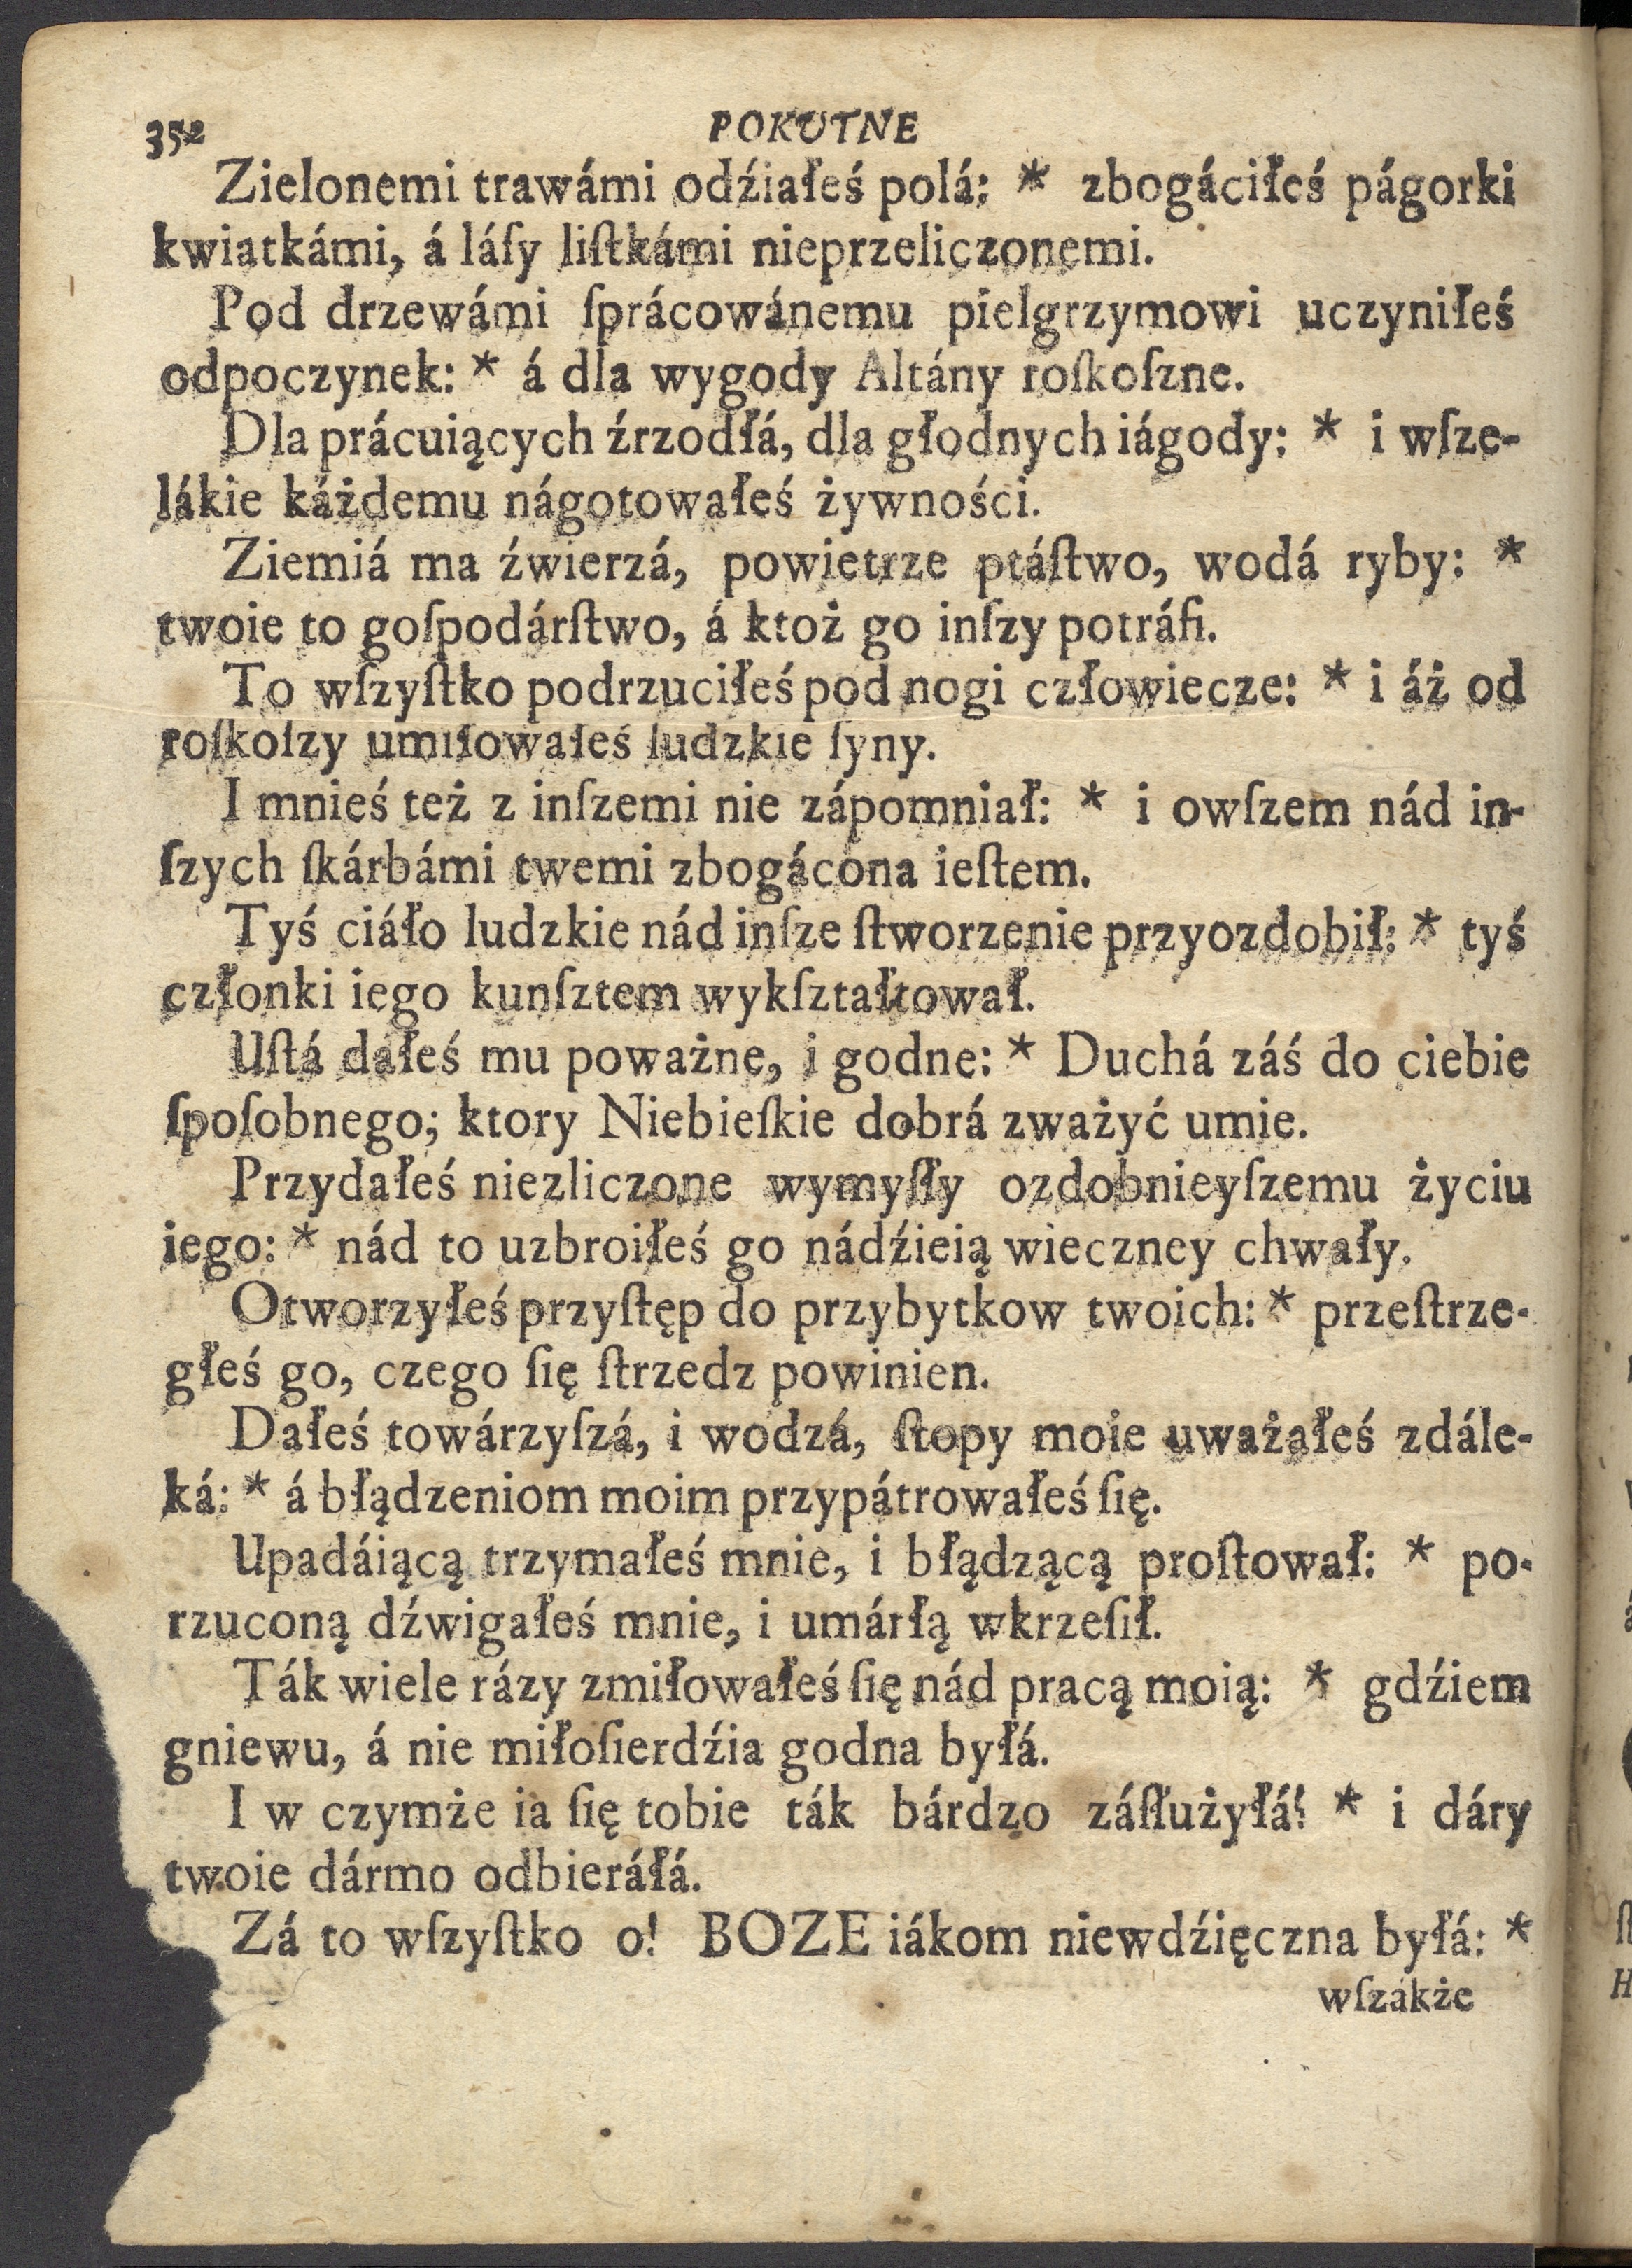 352 POKUTNE
Zielonemi trawámi odźiałeś polá: * zbogáciłeś págorki
kwiatkámi, á láſy liſtkámi nieprzeliczonemi.
Pod drzewámi ſprácowánemu pielgrzymowi uczyniłeś
odpoczynek: * á dla wygody Altány roſkoſzne.
Dla prácuiących źrzodłá, dla głodnych iágody: * i wſze-
lákie káżdemu nágotowałeś żywności.
Ziemiá ma źwierzá, powietrze ptáſtwo, wodá ryby: *
twoie to goſpodárſtwo, á ktoż go inſzy potráfi.
To wſzyſtko podrzuciłeś pod nogi człowiecze: * i áż od
roſkoſzy umiłowałeś ludzkie ſyny.
I mnieś też z inſzemi nie zápomniał: * i owſzem nád in-
ſzych ſkárbámi twemi zbogácóna ieſtem.
Tyś ciáło ludzkie nád inſze ſtworzenie przyozdobił: * tyś
członki iego kunſztem wykſztałtował.
Uſtá dałeś mu poważne, i godne: * Duchá záś do ciebie
ſpoſobnego; ktory Niebieſkie dobrá zważyć umie.
Przydałeś niezliczone wymyſły ozdobnieyſzemu życiu
iego: * nád to uzbroiłeś go nádźieią wieczney chwały.
Otworzyłeś przyſtęp do przybytkow twoich: * przeſtrze-
głeś go, czego ſię ſtrzedz powinien.
Dałeś towárzyſzá, i wodzá, ſtopy moie uważałeś zdále-
ká: * á błądzeniom moim przypátrowałeś ſię.
Upadáiącą trzymałeś mnie, i błądzącą proſtował: * po-
rzuconą dźwigałeś mnie, i umárłą wkrzeſił.
Ták wiele rázy zmiłowałeś ſię nád pracą moią: * gdźiem
gniewu, á nie miłoſierdźia godna byłá.
I w czymże ia ſię tobie ták bárdzo záſłużyłá! * i dáry
twoie dármo odbieráłá.
Zá to wſzyſtko o! BOZE iákom niewdźięczna byłá: *
wſzákże